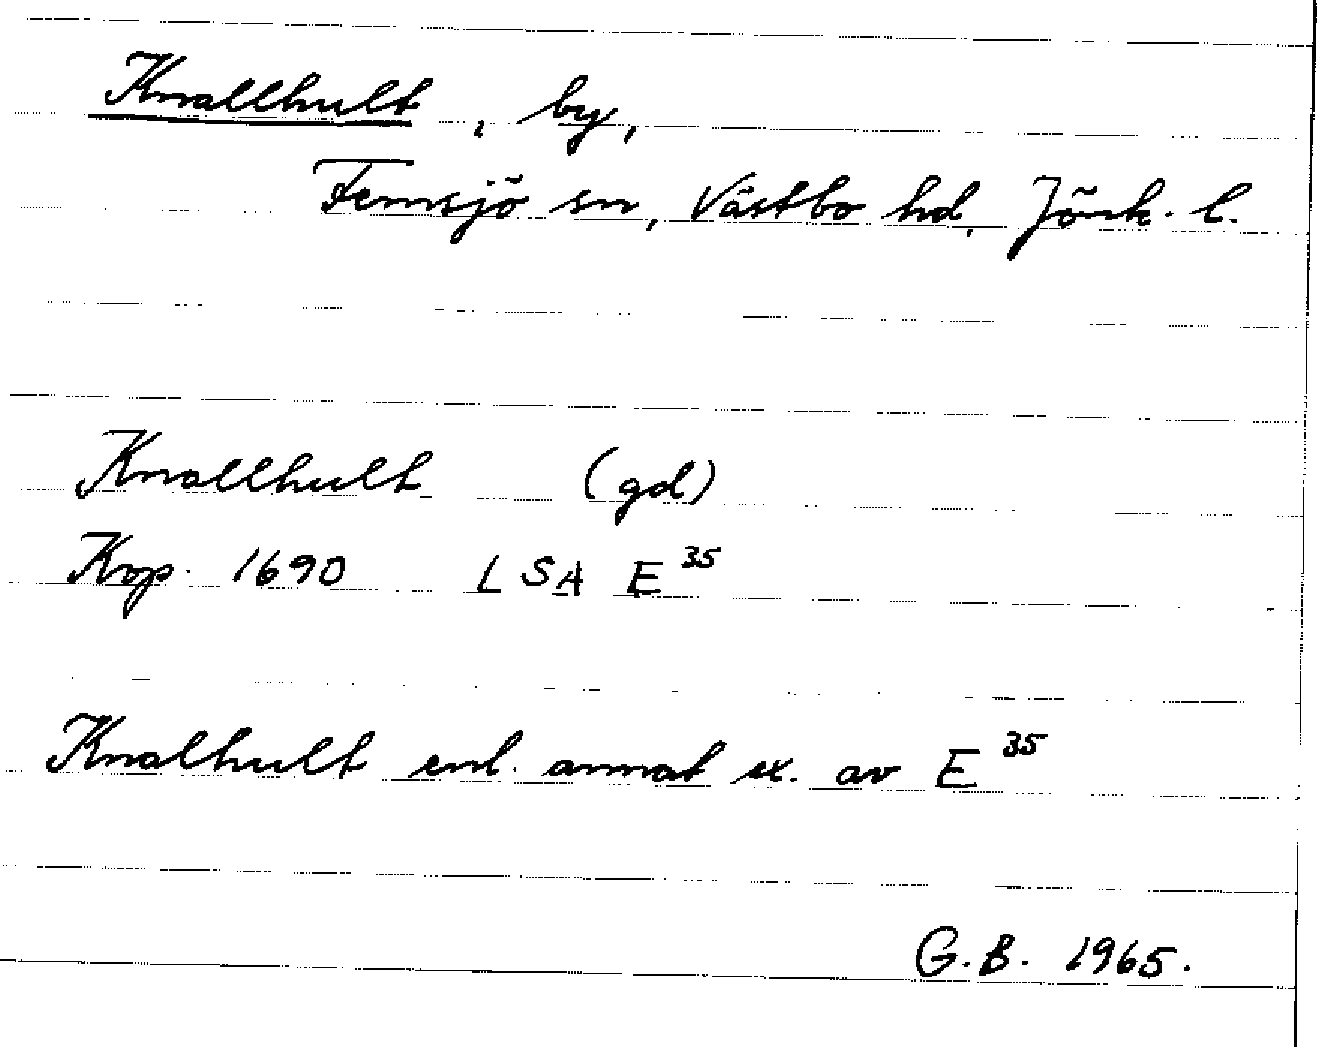 Knallhult, by,
Femsjö sn, Västbo hd, Jönk. l.
Knallhult (gd)
Kop. 1690 LSA E 35
Knalhult enl. annat ex. av E 35
G.B. 1965.